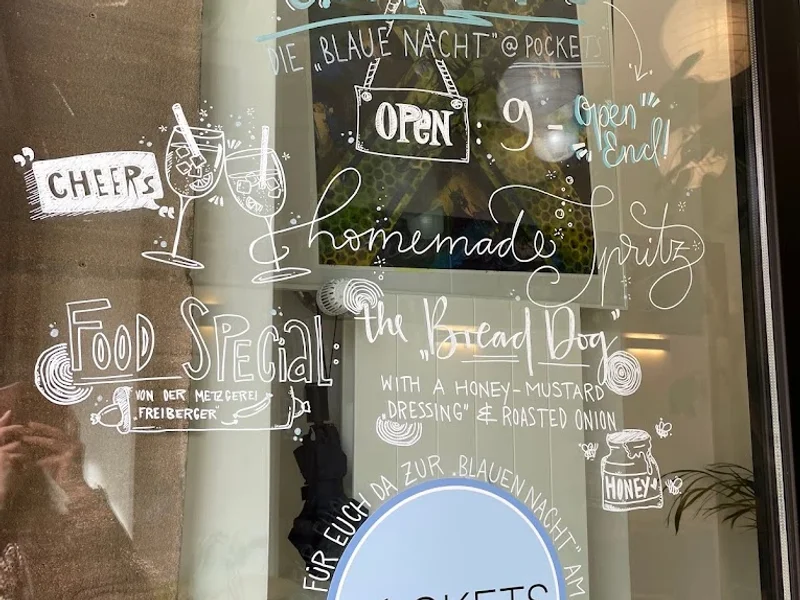 DIE „BLAUE NACHT" @ POCKETS
OPEN : 9 - Open End!
„CHEERs"
homemade Spritz
FOOD SPECiaL: the „Bread Dog"
VON DER METZGEREI
„FREIBERGER"
WITH A HONEY-MUSTARD
DRESSING" & ROASTED ONION
HONEY
FÜR EUCH DA ZUR „BLAUEN NACHT" AM
POCKETS